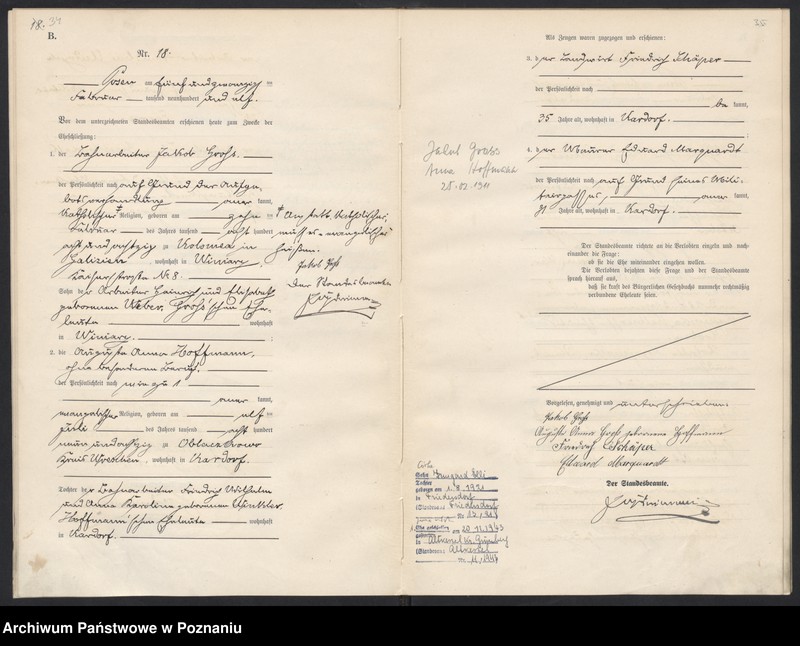 18. 34
B.
Nr. 18.
Posen am fünfundzwanzig ten
Februar tausend neunhundert und elf.
Vor dem unterzeichneten Standesbeamten erschienen heute zum Zwecke der
Eheschließung:
1. der Bahnarbeiter Jakob Groß.
der Persönlichkeit nach auf Grund der Aufge-
botsverhandlung aner kannt,
katholischer Religion, geboren am zehn ten
Februar des Jahres tausend acht hundert
acht und achtzig zu Kolomea in
Galizien, wohnhaft in Winiary,
Nr. 8.
Sohn des Arbeiter Heinrich und Elisabeth
geborenen Weber, Groß'schen Ehe-
leute wohnhaft
in Winiary.
2. die Auguste Anna Hoffmann,
ohne besonderen Beruf.
der Persönlichkeit nach wie zu 1
aner kannt,
evangelischer Religion, geboren am elf ten
Juli des Jahres tausend acht hundert
neun und achtzig zu
Kreis Wreschen, wohnhaft in Kardorf.
Tochter der Bahnarbeiter Friedrich Wilhelm
und Anna Karoline geborenen Winkler,
Hoffmann'schen Eheleute wohnhaft
in Kardorf.
Anstatt "katholischer"
muß es "evangelischer"
heißen.
Jakob Groß
Der Standesbeamte.
35
Als Zeugen waren zugezogen und erschienen:
3. der Landwirt Friedrich Schäper
der Persönlichkeit nach
be kannt,
35 Jahre alt, wohnhaft in Kardorf.
4. der Maurer Eduard Marquardt
der Persönlichkeit nach auf Grund seines Mili-
tärpasses, aner kannt,
Jahre alt, wohnhaft in Kardorf.
Der Standesbeamte richtete an die Verlobten einzeln und nach-
einander die Frage:
ob sie die Ehe miteinander eingehen wollen.
Die Verlobten bejahten diese Frage und der Standesbeamte
sprach hierauf aus,
daß sie kraft des Bürgerlichen Gesetzbuchs nunmehr rechtmäßig
verbundene Eheleute seien.
Vorgelesen, genehmigt und unterschrieben
Jakob Groß
Auguste Anna Groß geborene Hoffmann
Friedrich Schäper
Eduard Marquardt
Der Standesbeamte.
Jakob Gross
Anna Hoffmann
25.02.1911
Tochter
geboren am
in Friedersdorf
Friedersdorf
am 20.11.1943
in
Archiwum Państwowe w Poznaniu